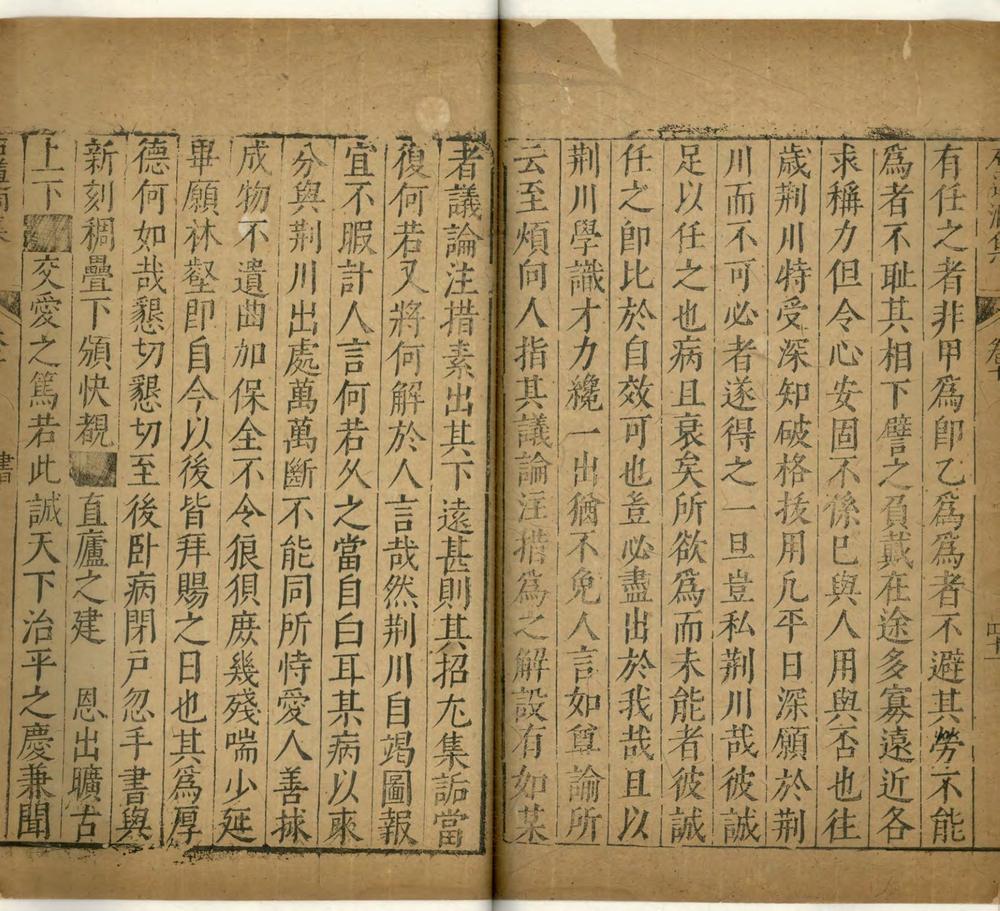 卷十
有任之者非甲爲卽乙爲爲者不避其勞不能
爲者不耻其相下譬之負戴在途多寡遠近各
求稱力但令心安固不係已與人用與否也往
歲荆川特受深知破格拔用凢平日深願於荆
川而不可必者遂得之一旦豈私荆川哉彼誠
足以任之也病且衰矣所欲爲而未能者彼誠
任之卽比於自效可也豈必盡出於我哉且以
荆川學識才力纔一出猶不免人言如尊論所
云至煩向人指其議論注措爲之解設有如某
者議論注措素出其下遠甚則其招尢集詬當
復何若又將何解於人言哉然荆川自竭圖報
宜不暇計人言何若乆之當自白耳某病以來
分與荆川出處萬萬斷不能同所恃愛人善捄
成物不遺曲加保全不令狼狽庶幾殘喘少延
畢願林壑卽自今以後皆拜賜之日也其爲厚
德何如哉懇切懇切至後卧病閉戸忽手書與
新刻稠疊下頒快覩 直廬之建 恩出曠古
上下 交愛之篤若此誠天下治平之慶兼聞
書